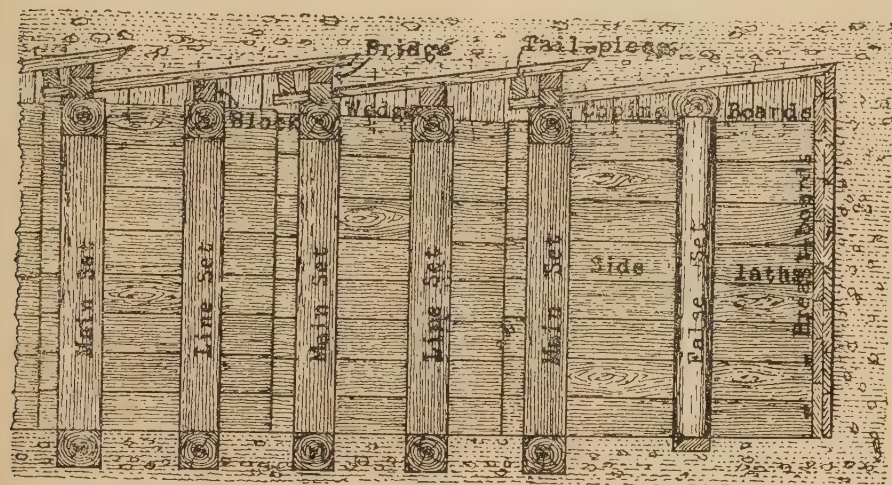 Bridge
Tail-piece
Block
Wedge
Coping Boards
Main Set
Line Set
Main Set
Line Set
Main Set
Side laths
False Set
Breast Boards